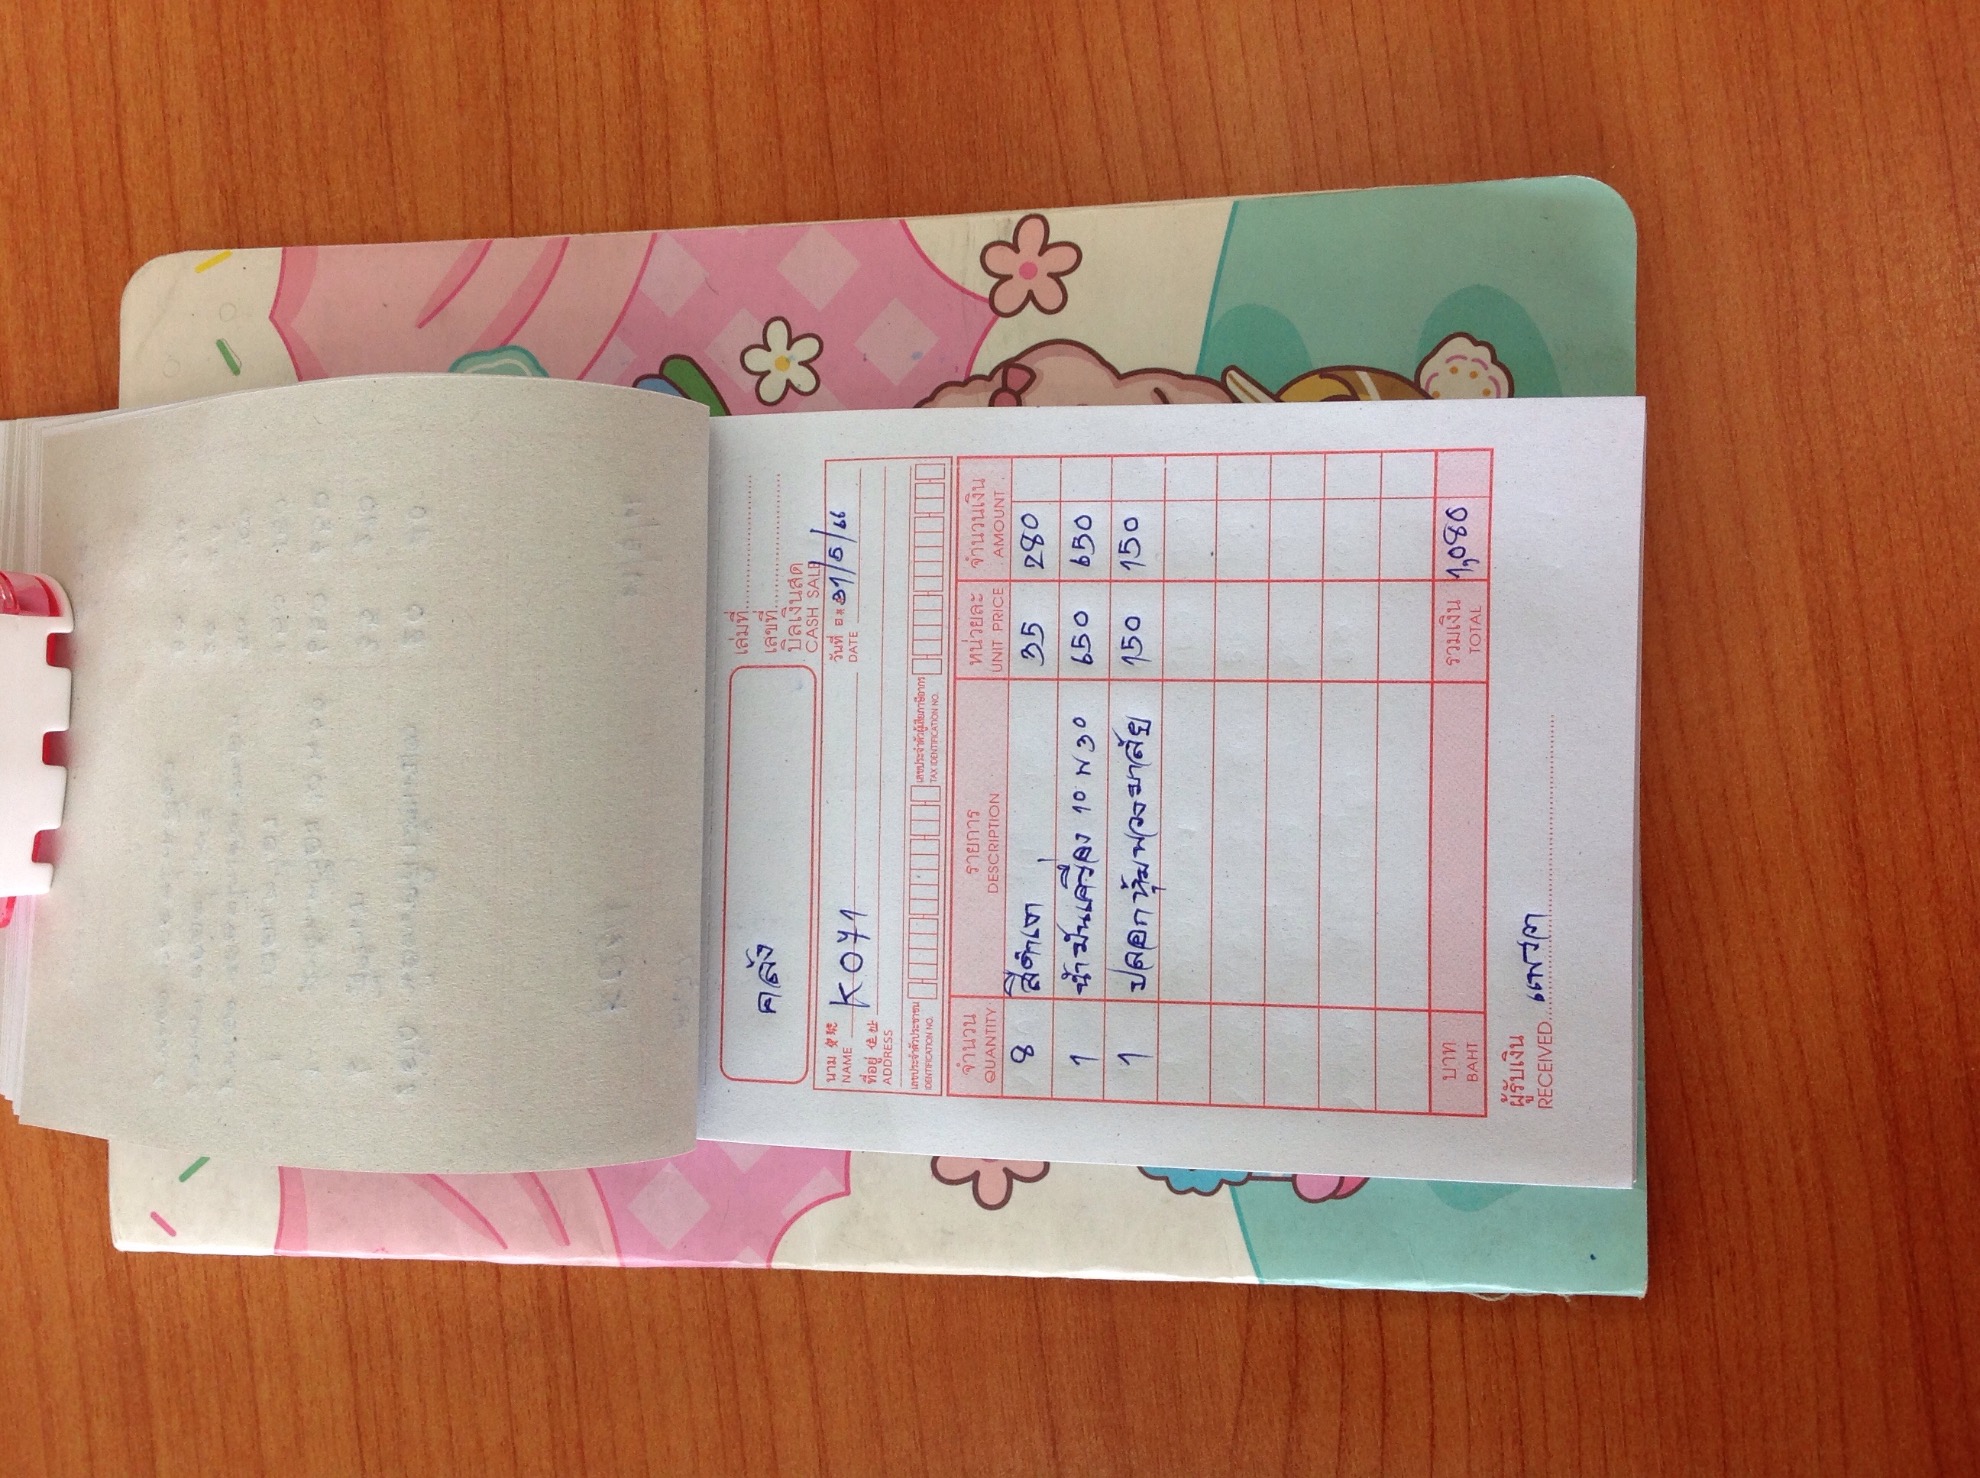 คลัง
เล่มที่
เลขที่
บิลเงินสด
CASH SALE
นาม K071
NAME
วันที่ 31/5/66
DATE
ที่อยู่
ADDRESS
เลขประจำตัวประชาชน
IDENTIFICATION NO.
เลขประจำตัวผู้เสียภาษีอากร
TAX IDENTIFICATION NO.
จำนวน รายการ หน่วยละ จำนวนเงิน
QUANTITY DESCRIPTION UNIT PRICE AMOUNT
8 สีดำเงา 35 280
1 น้ำมันเครื่อง 10 W 30 650 650
1 ปลอกหุ้มพวงมาลัย 150 150
บาท รวมเงิน 1,080
BAHT TOTAL
ผู้รับเงิน
RECEIVED